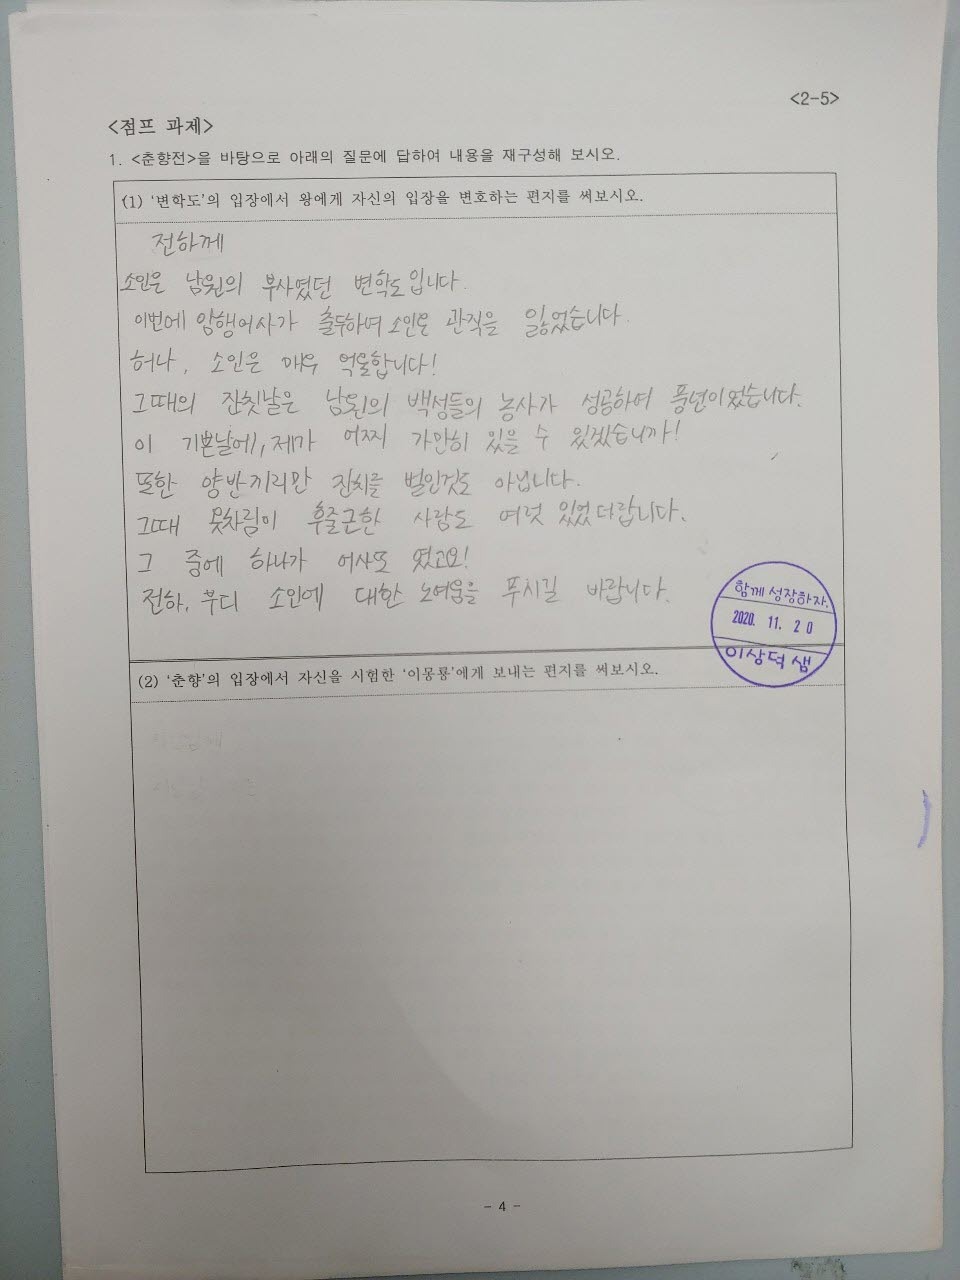 <2-5>
<점프 과제>
1. <춘향전>을 바탕으로 아래의 질문에 답하여 내용을 재구성해 보시오.
(1) '변학도'의 입장에서 왕에게 자신의 입장을 변호하는 편지를 써보시오.
전하께
소인은 남원의 부사였던 변학도입니다.
이번에 암행어사가 출두하여 소인은 관직을 잃었습니다.
허나, 소인은 매우 억울합니다!
그때의 잔칫날은 남원의 백성들의 농사가 성공하여 풍년이었습니다.
이 기쁜날에, 제가 어찌 가만히 있을 수 있겠습니까!
또한 양반끼리만 잔치를 벌인것도 아닙니다.
그때 옷차림이 후줄근한 사람도 여럿 있었더랍니다.
그 중에 하나가 어사또 였고요!
전하, 부디 소인에 대한 노여움을 푸시길 바랍니다.
함께 성장하자.
2020. 11. 20
이상덕 샘
(2) '춘향'의 입장에서 자신을 시험한 '이몽룡'에게 보내는 편지를 써보시오.
- 4 -